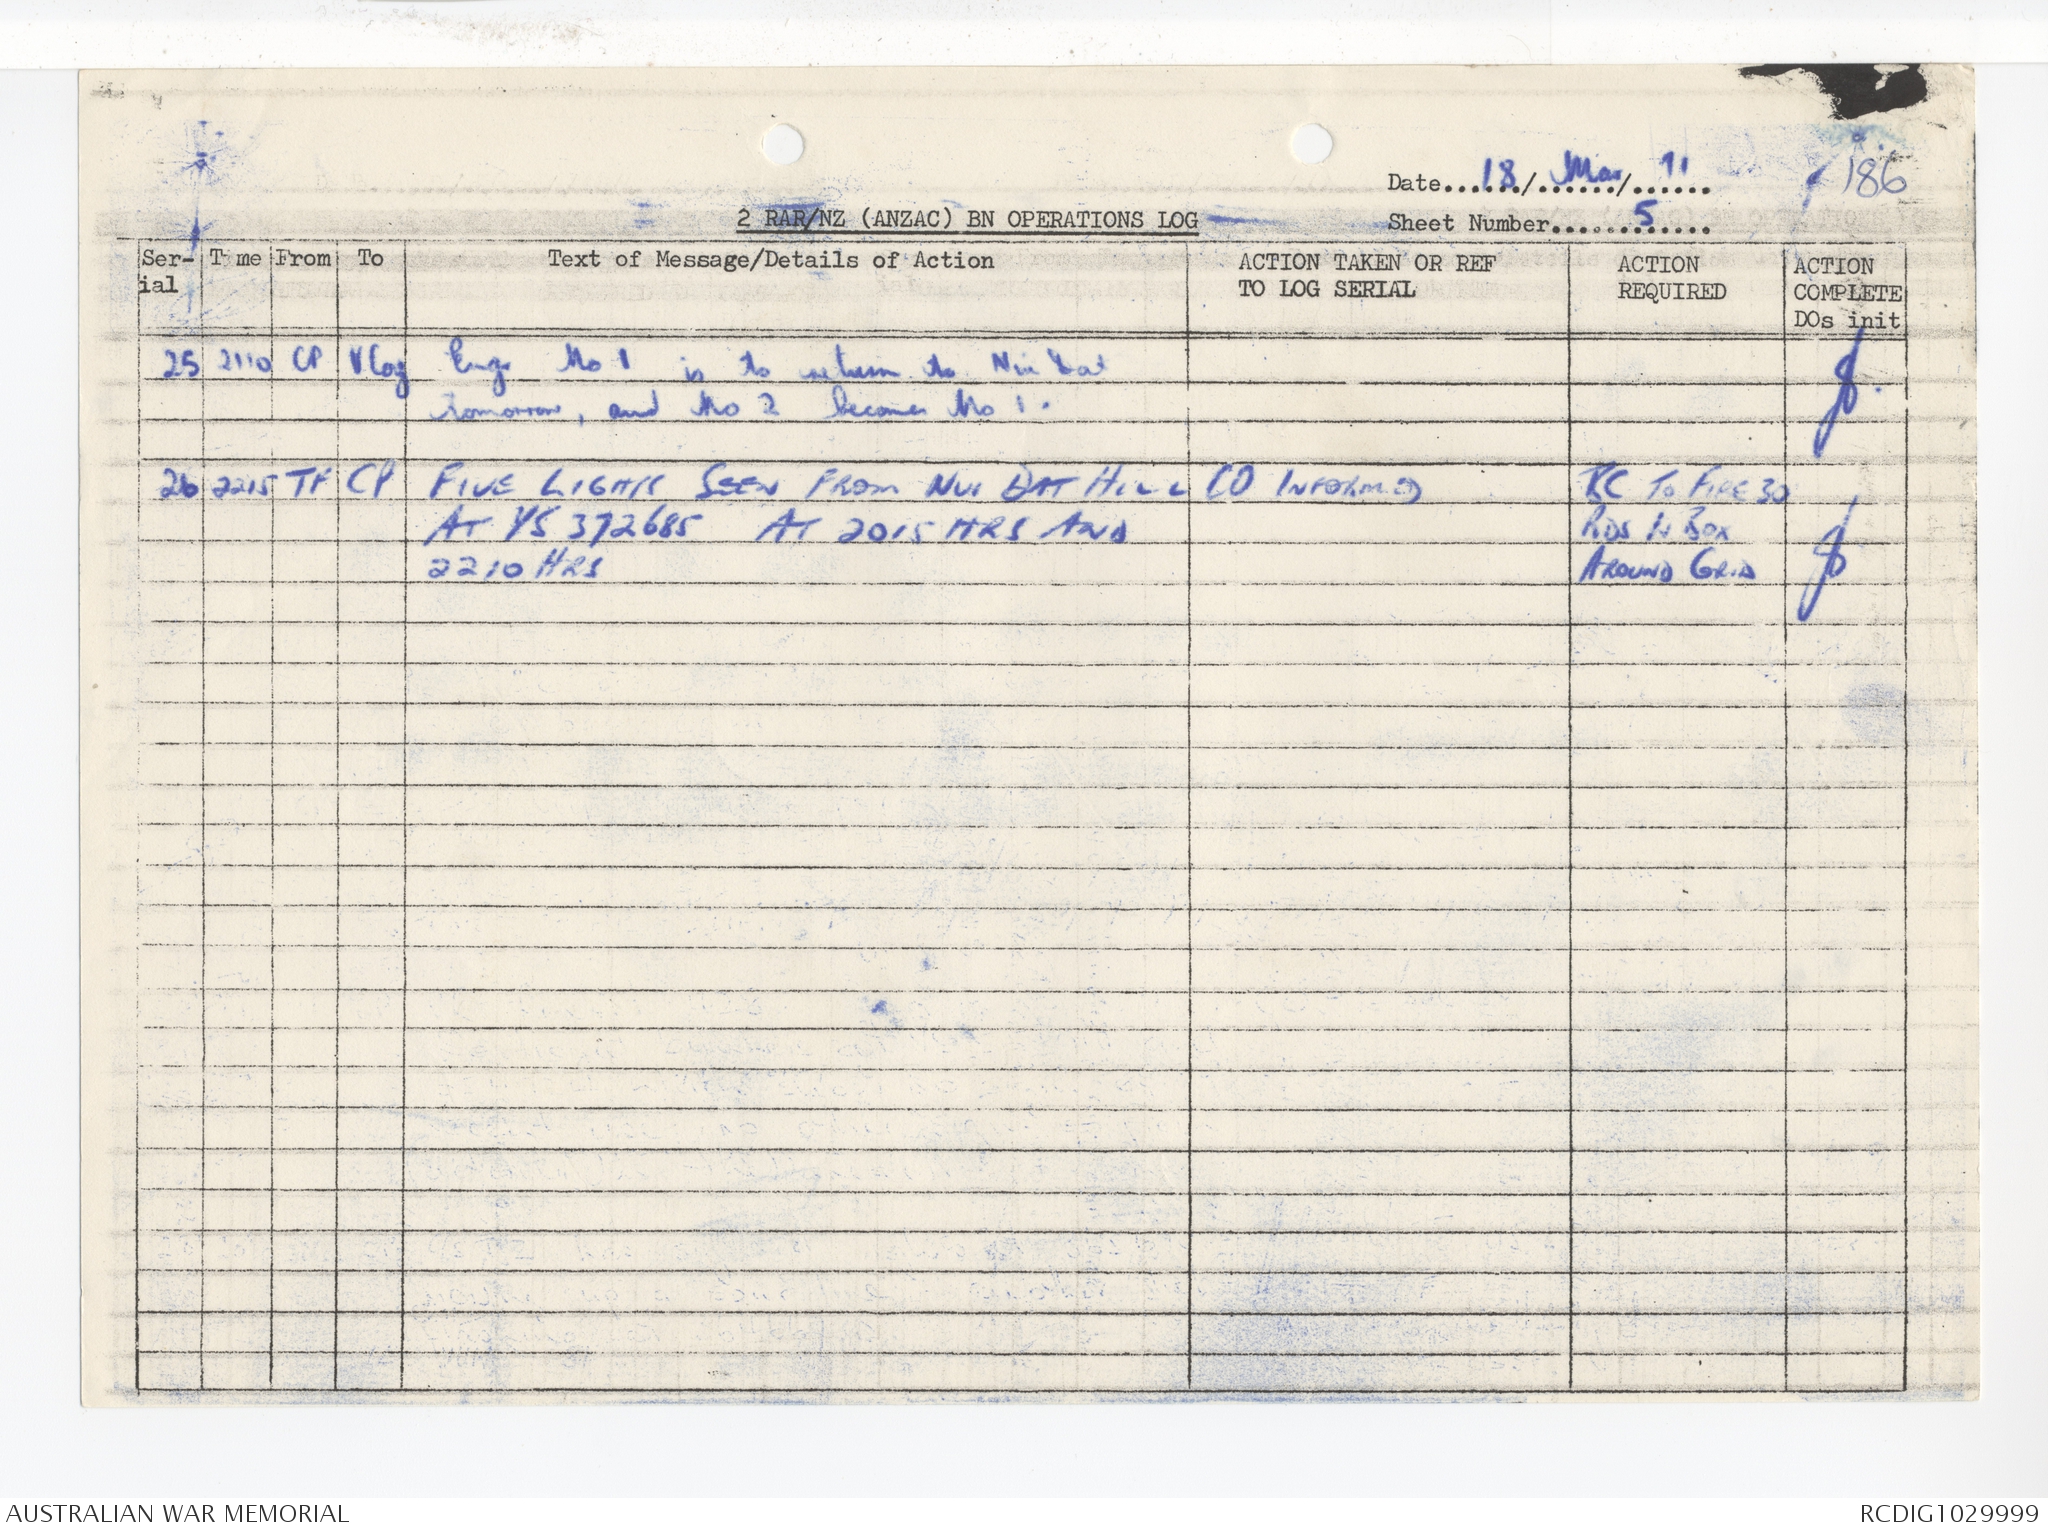 186
Date 18/Mar/71
2 RAR/NZ (ANZAC) BN OPERATIONS LOG
Sheet Number 5
Ser-ial Time From To Text of Message/Details of Action ACTION TAKEN OR REF TO LOG SERIAL ACTION REQUIRED ACTION COMPLETE DOs init
25 2110 CP Vlog Engr No 1 is to return to Nui Dat
tomorrow, and No 2 becomes No 1.
26 2215 TF CP FIVE LIGHTS SEEN FROM NUI DAT HILL CO INFORMED BC TO FIRE 30
AT YS 372685 AT 2015 HRS AND RDS IN BOX
2210 HRS AROUND GRID
AUSTRALIAN WAR MEMORIAL RCDIG1029999